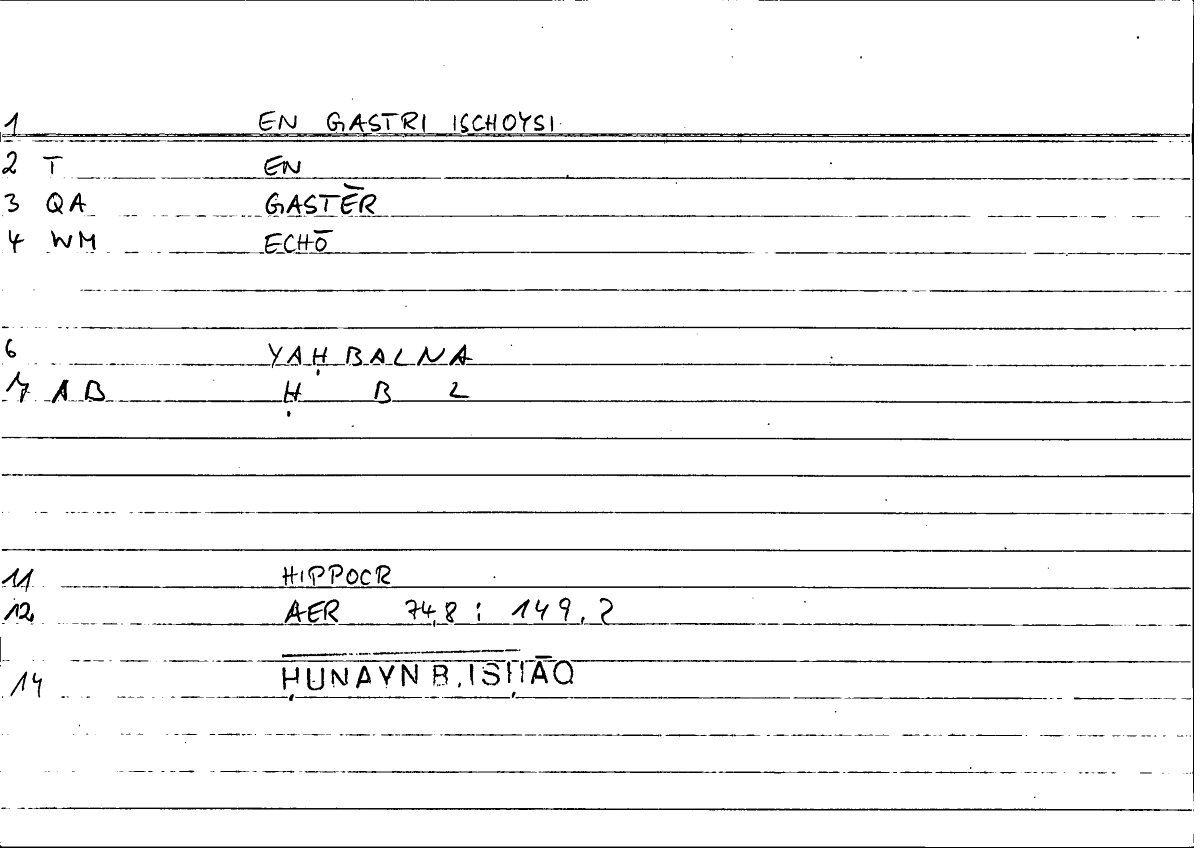 1 EN GASTRI ISCHOYSI
2 T EN
3 QA GASTĒR
4 WM ECHŌ
6 YAḤBALNA
7 AB Ḥ B L
11 HIPPOCR
12 AER 74,8 : 149,2
14 ḤUNAYN B. ISḤĀQ